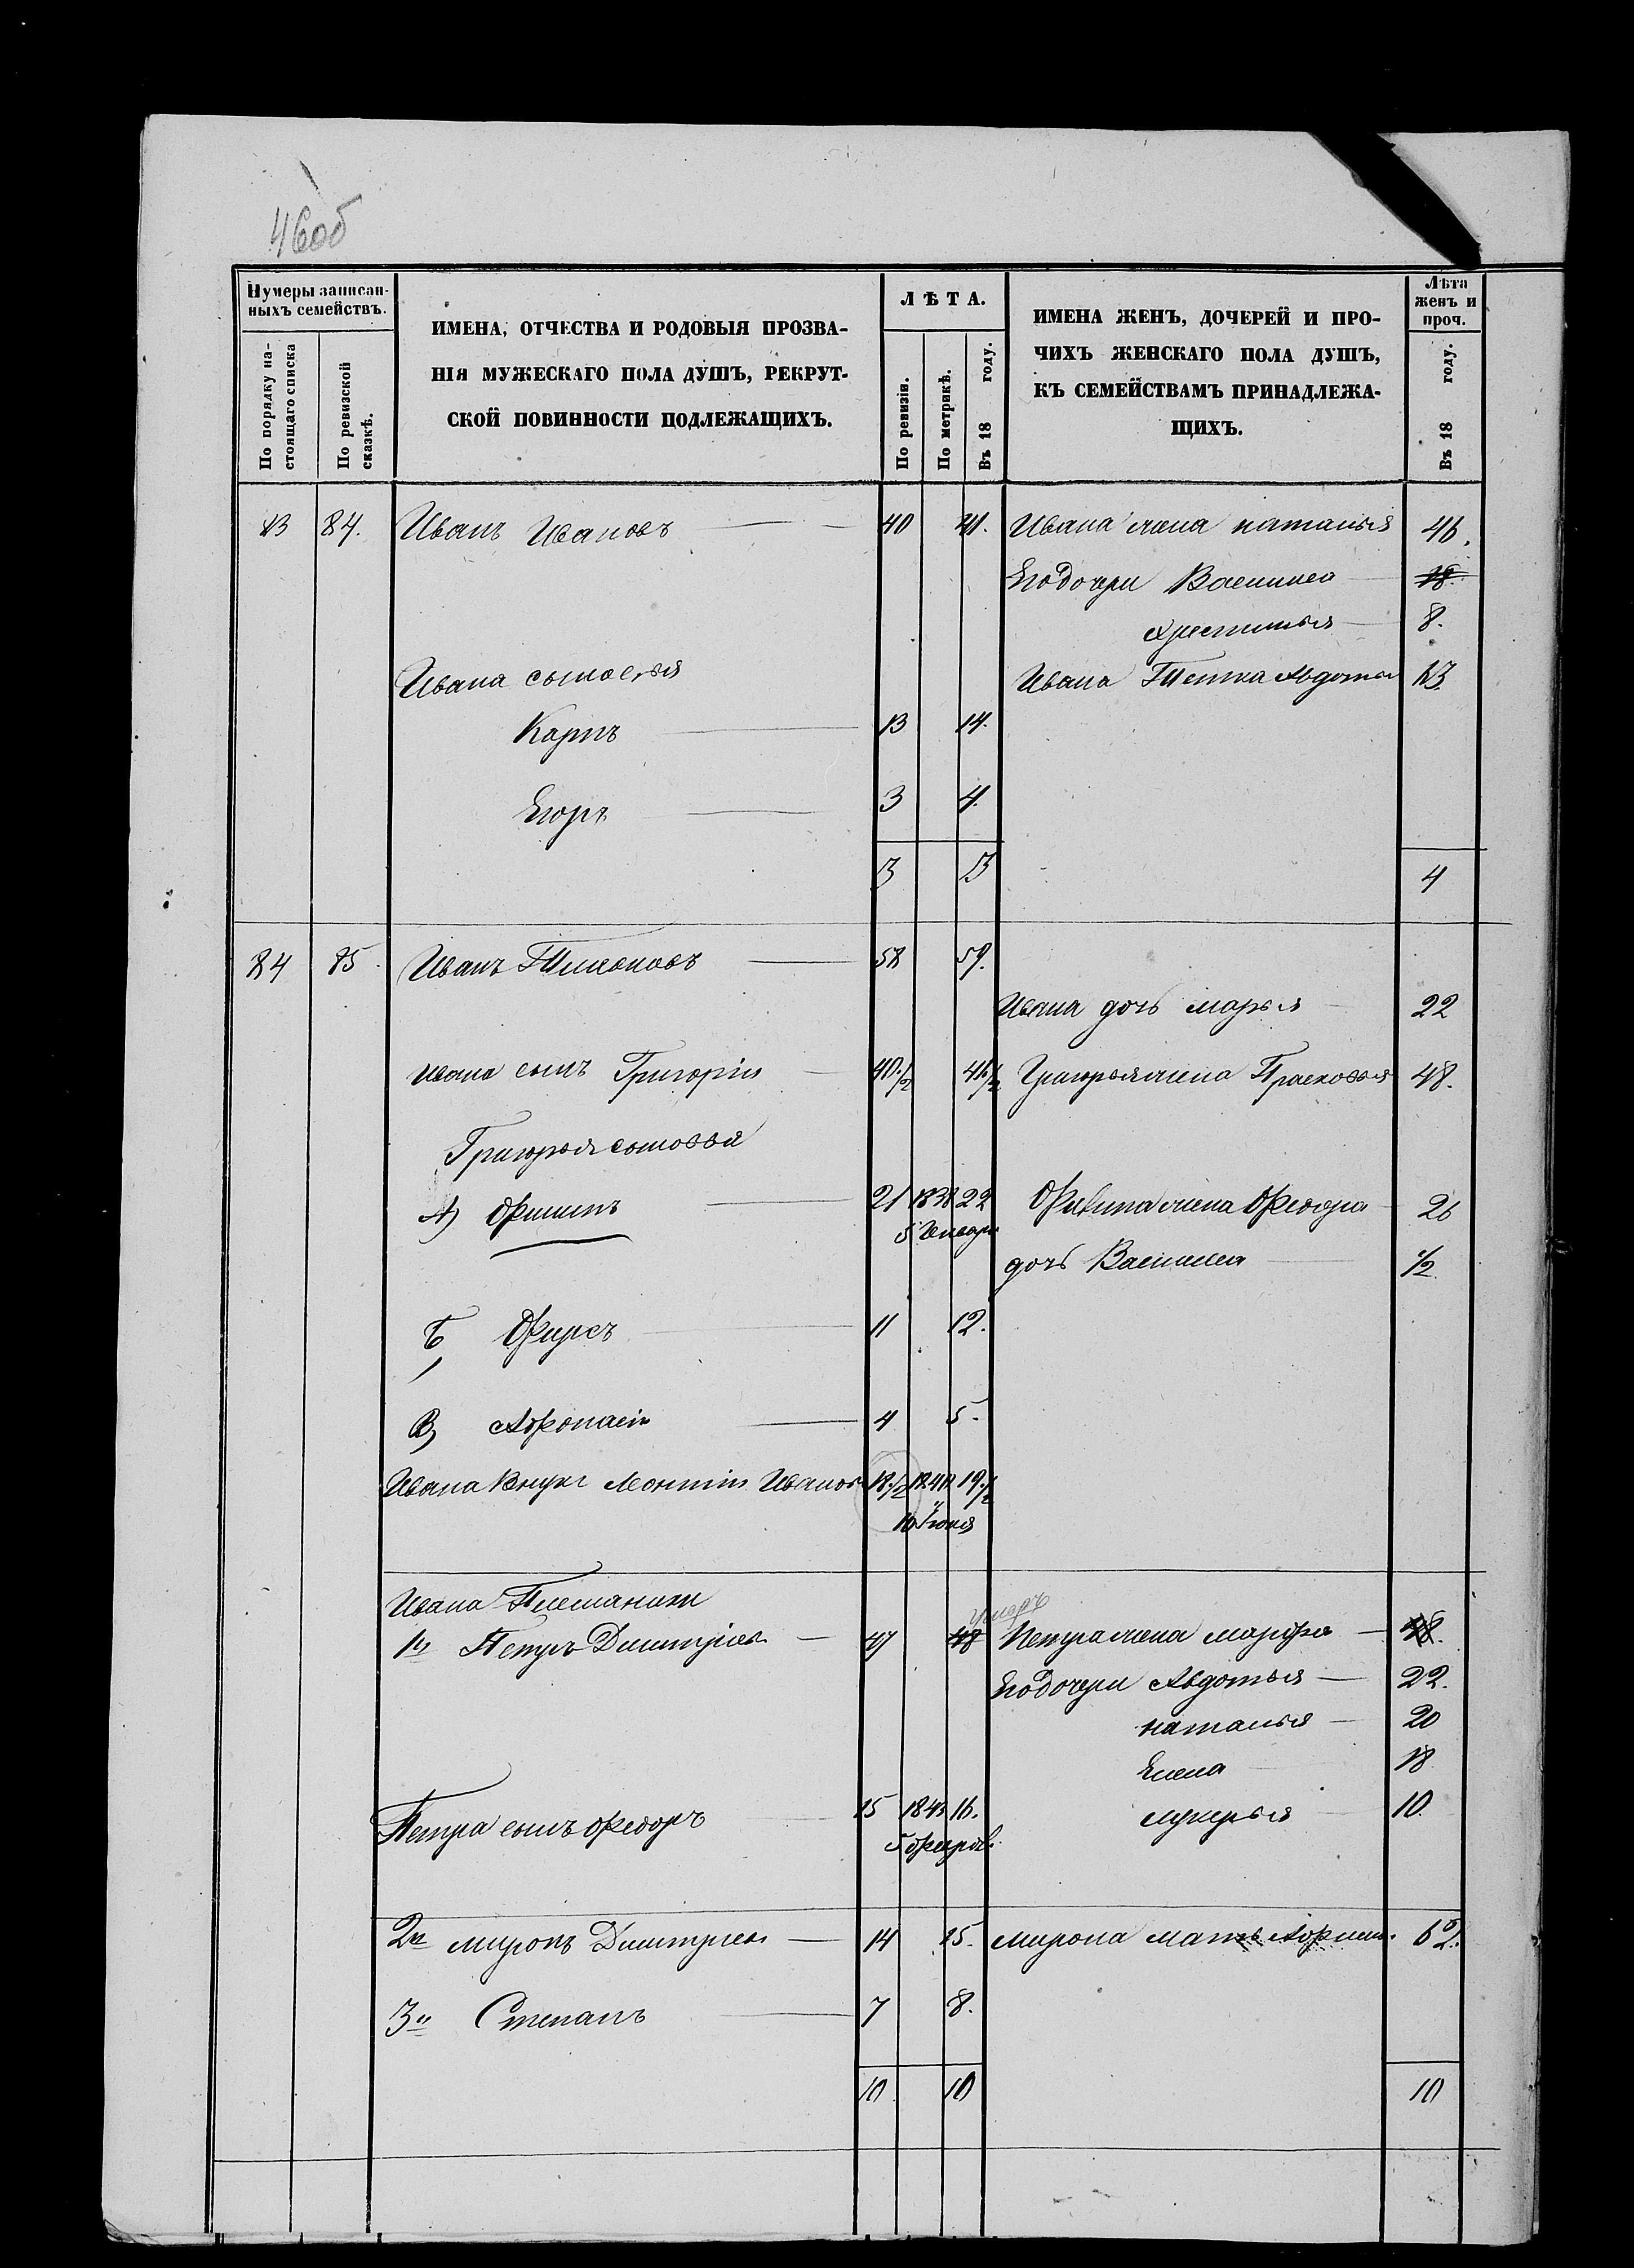 46об
Нумеры записан-
ныхъ семействъ.
По порядку на-
стоящаго списка
По ревизской
сказкѣ.
ИМЕНА, ОТЧЕСТВА И РОДОВЫЯ ПРОЗВА-
НІЯ МУЖЕСКАГО ПОЛА ДУШЪ, РЕКРУТ-
СКОЙ ПОВИННОСТИ ПОДЛЕЖАЩИХЪ.
ЛѢТА.
По ревизіи.
По метрикѣ.
Въ 18 году.
ИМЕНА ЖЕНЪ, ДОЧЕРЕЙ И ПРО-
ЧИХЪ ЖЕНСКАГО ПОЛА ДУШЪ,
КЪ СЕМЕЙСТВАМЪ ПРИНАДЛЕЖА-
ЩИХЪ.
Лѣта
женъ и
проч.
Въ 18 году.
83 84. Иванъ Ивановъ 40 41. Ивана жена наталья 46.
Его дочери Василиса 18.
Хрестинья 8.
Ивана сыновья Ивана Тетка Авдотья
Карпъ 13 14.
Егоръ 3 4.
3 3 4
84 85. Иванъ Тихоновъ 58 59.
Ивана дочь марья 22
Ивана сынъ Григорій 40 1/2 41 1/2 Григорья жена Прасковья 48.
Григорья сыновья
А) Филипъ 21 1838 22 Филипа жена Федора 26
5 Генваря
дочь Василиса 1/2
Б, Фирсъ 11 12.
В, Афонасій 4 5.
Ивана Внукъ Леонтій Иванов 18 1/2 1840 19 1/2
10 Іюня
Ивана Племянники
умеръ
1й Петръ Дмитріев 47 48 Петра жена марфа 48.
Его дочери Авдотья 22.
наталья 20
Елена 18
Петра сынъ Федоръ 15 1843 16. лукерья 10.
5 Феврал.
2й миронъ Дмитріев 14 15. мирона мать 62.
3й Степанъ 7 8.
10 10 10